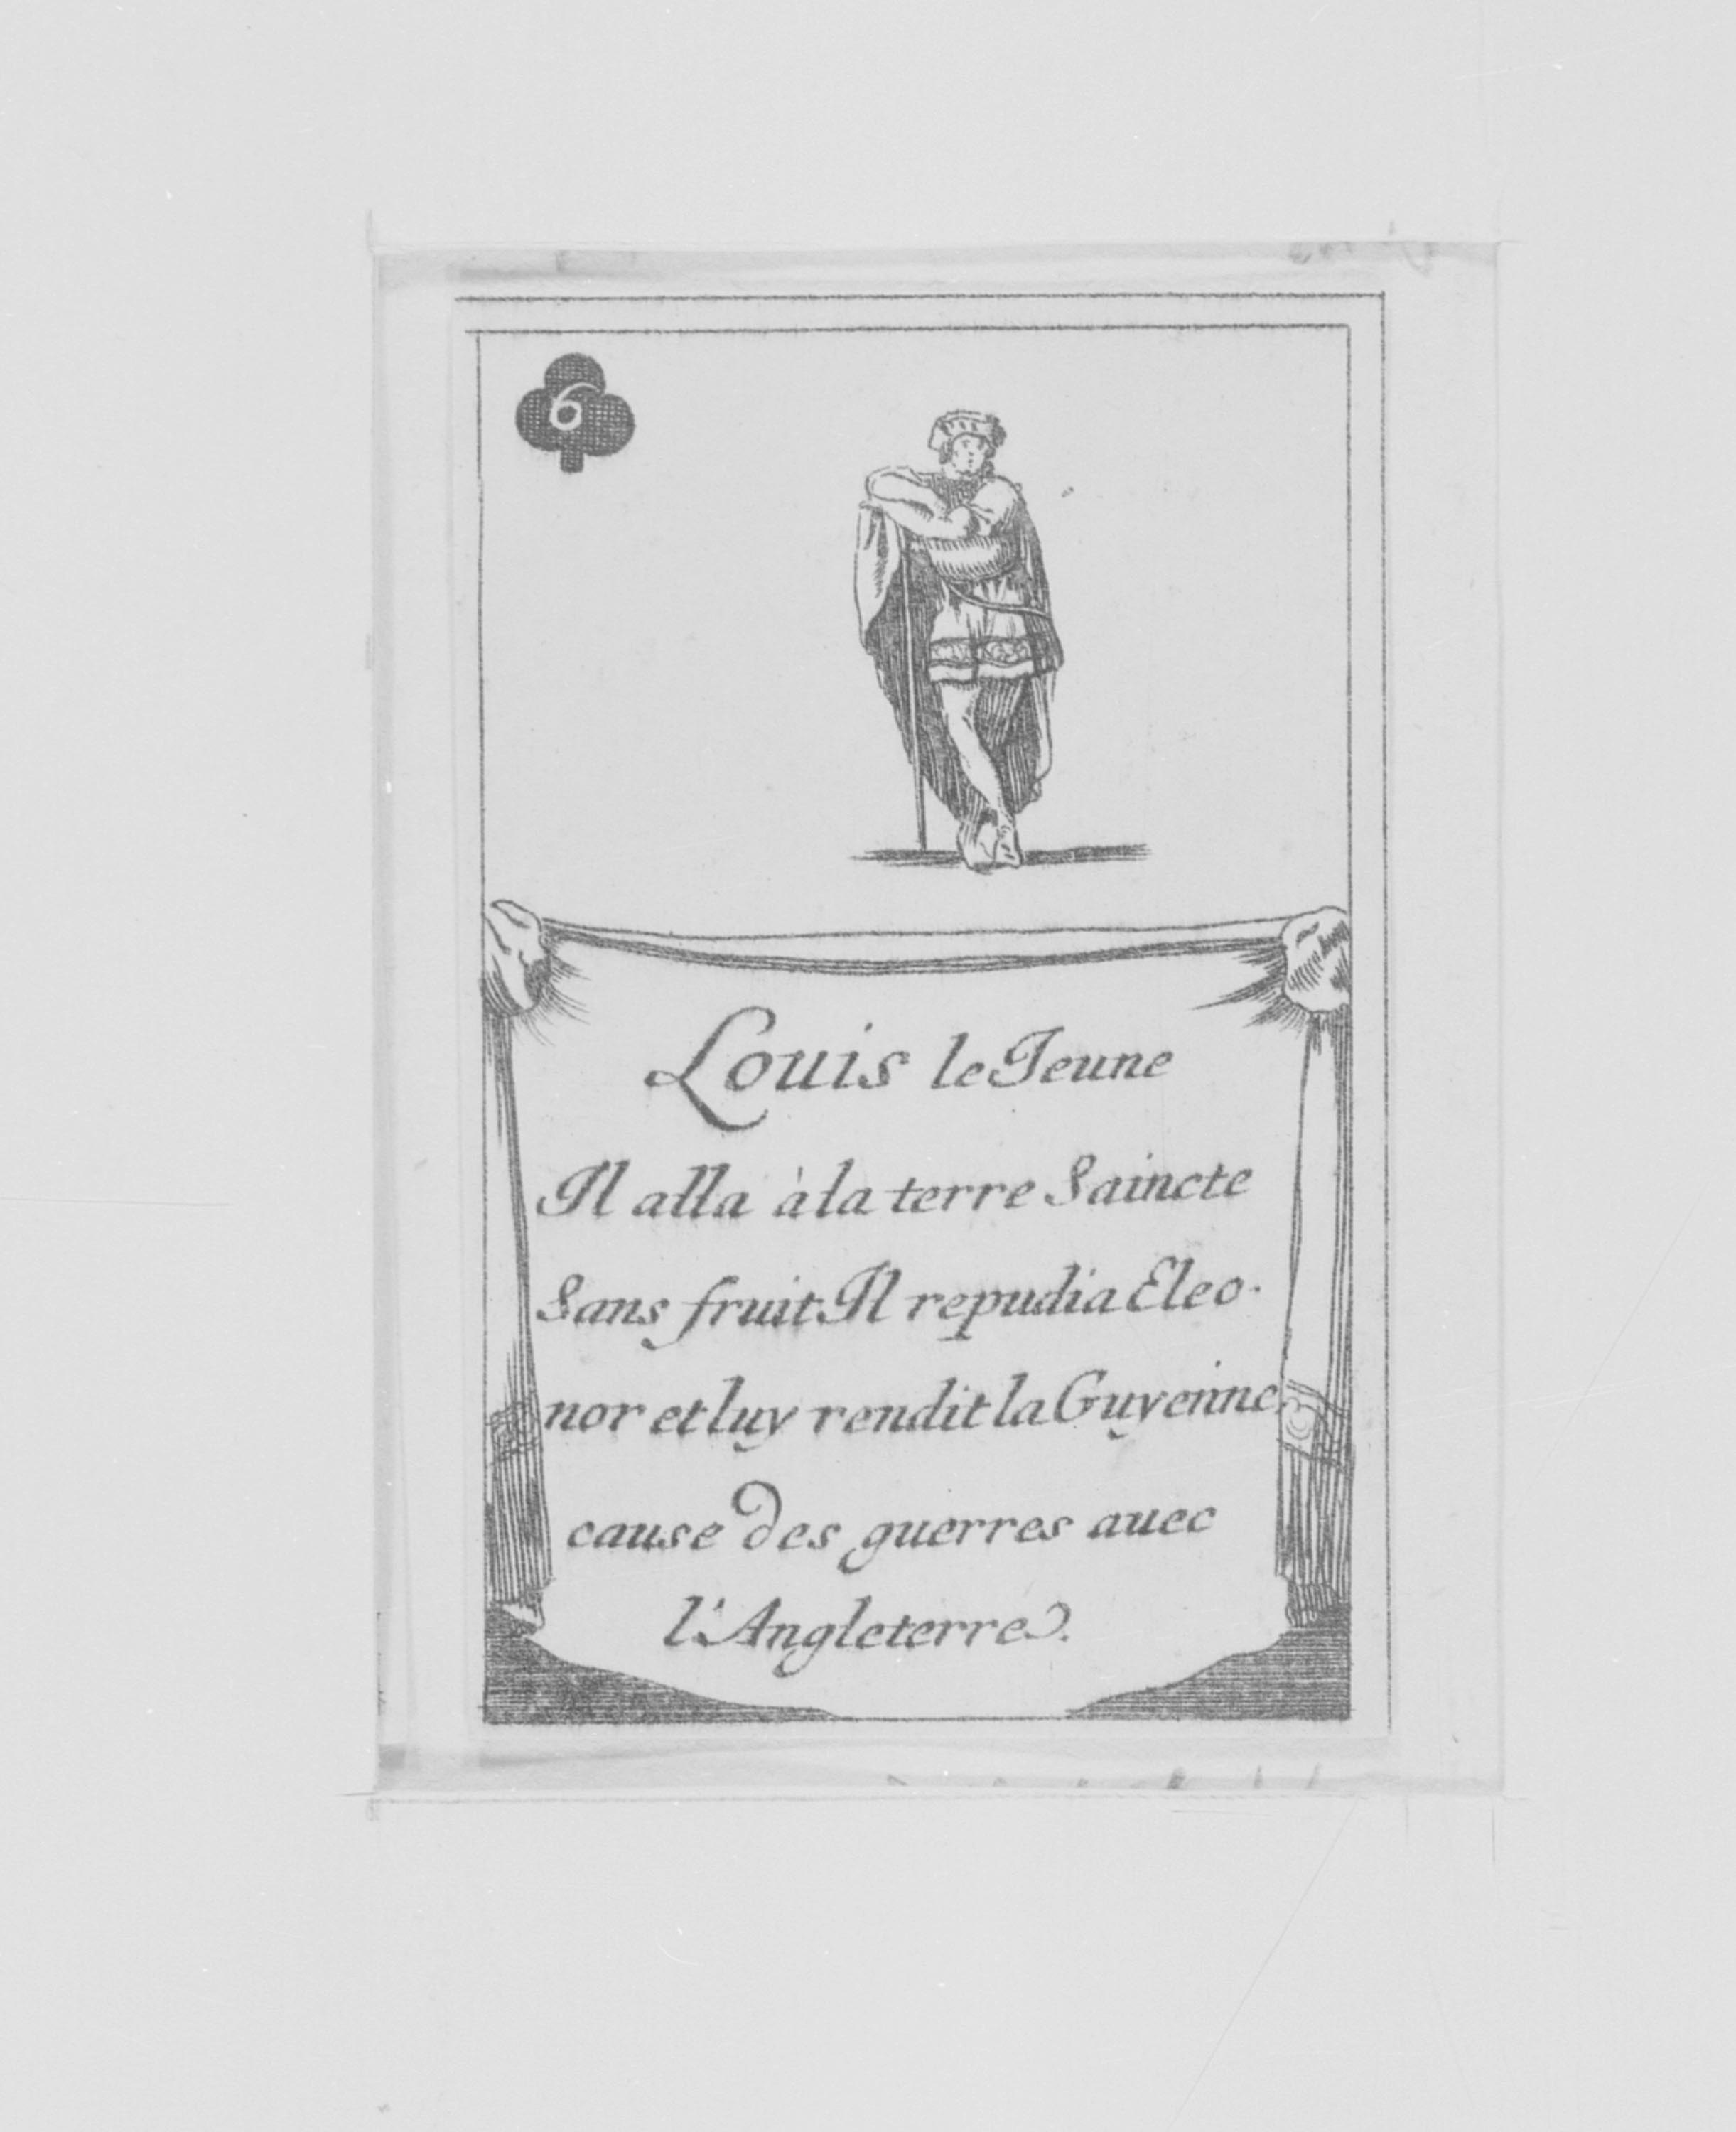 6
Louis le Jeune
Il alla à la terre Saincte
Sans fruit. Il repudia Eleo-
nor et luy rendit la Guyenne,
cause des guerres auec
l'Angleterre.